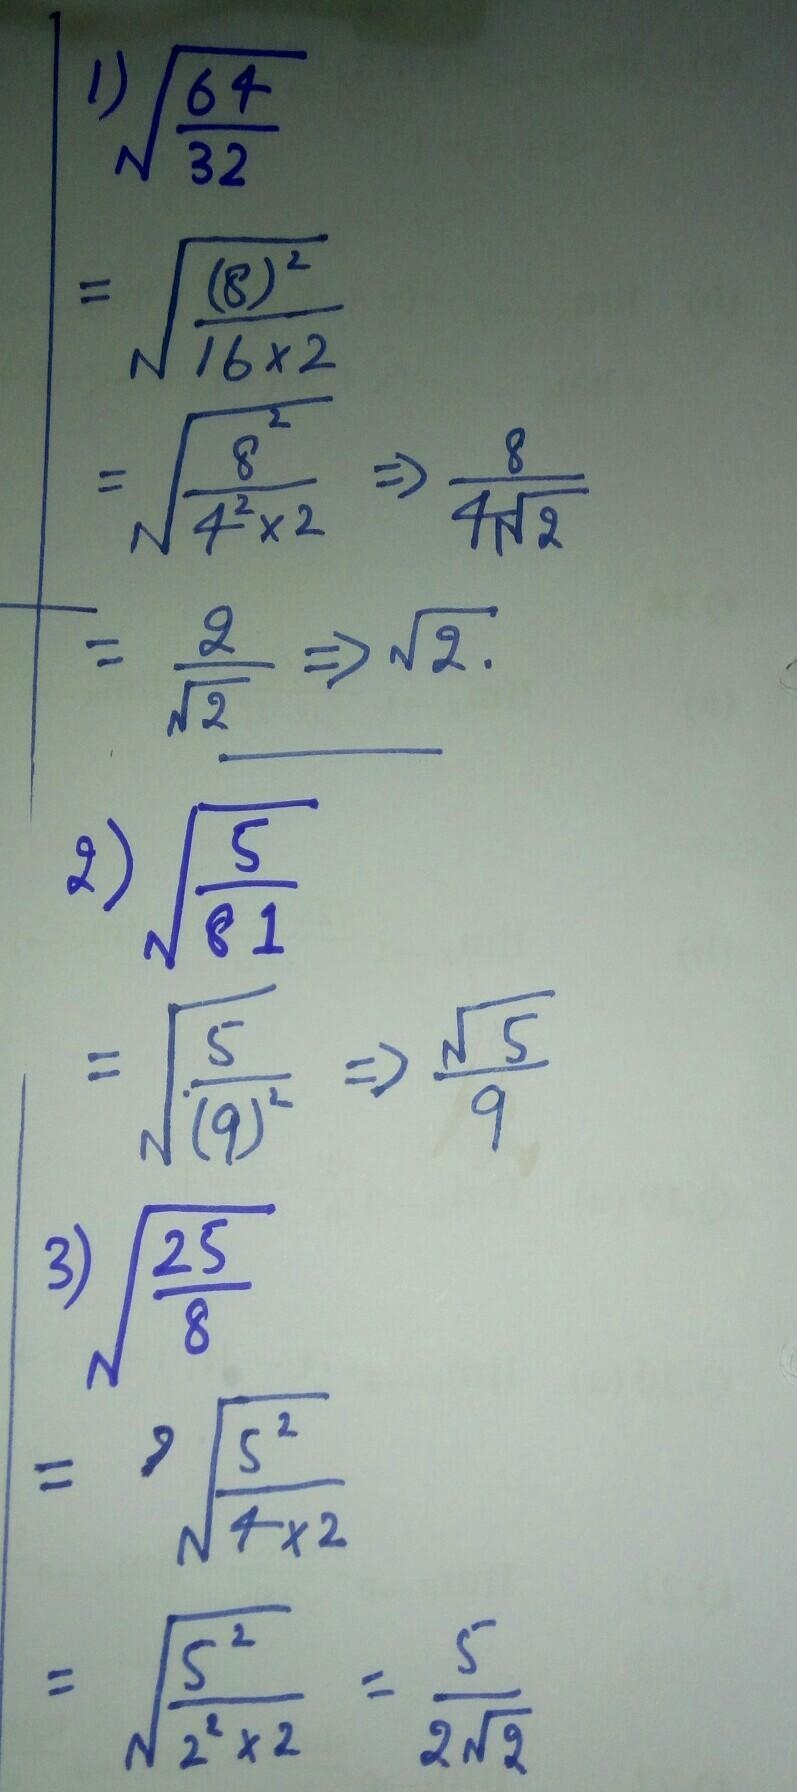 1) √(64/32)
= √((8)²/16×2)
= √(8²/4²×2) ⇒ 8/4√2
= 2/√2 ⇒ √2.
2) √(5/81)
= √(5/(9)²) ⇒ √5/9
3) √(25/8)
= √(5²/4×2)
= √(5²/2²×2) = 5/2√2